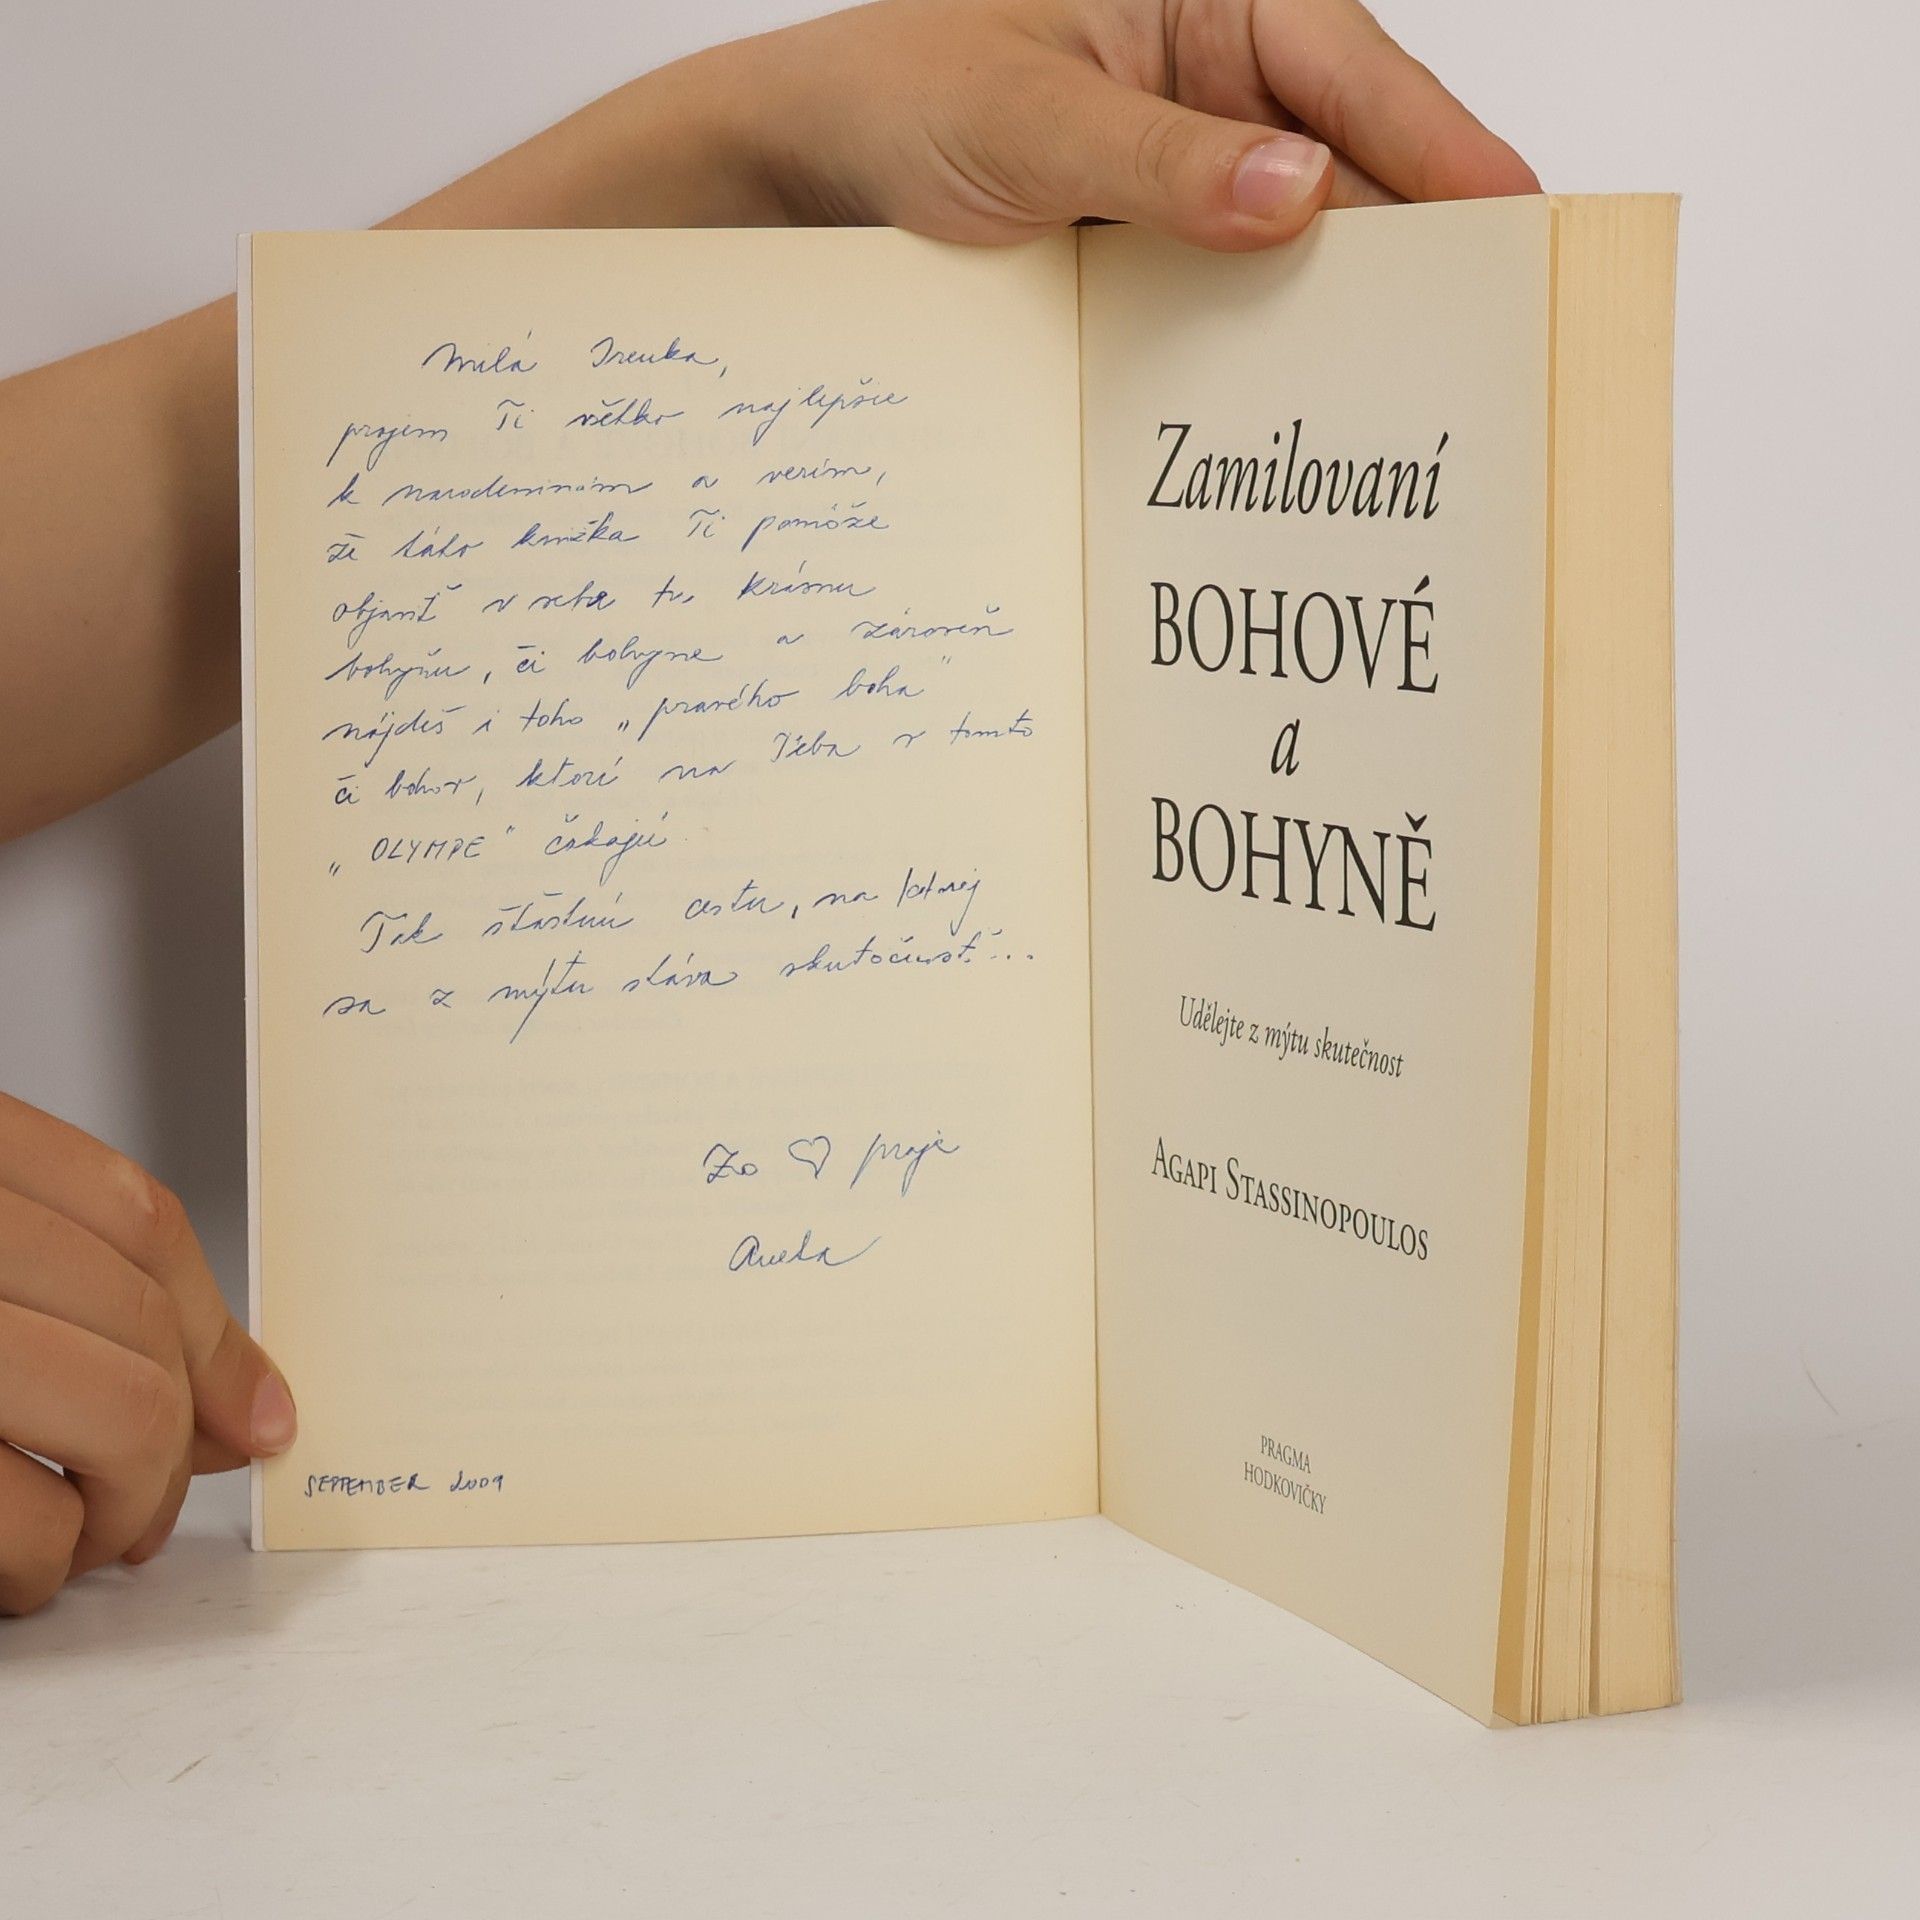 Milá Irenka,
prajem Ti všetko najlepšie
k narodeninám a verím,
že táto knižka Ti pomôže
objaviť v sebe tú krásnu
bohyňu, či bohyne a zároveň
nájdeš i toho „pravého boha"
či bohov, ktorí na Teba v tomto
„OLYMPE" čakajú
Tak šťastnú cestu, na ktorej
sa z mýtu stáva skutočnosť...
Zo ♡ praje
Aneta
SEPTEMBER 2009
Zamilovaní
BOHOVÉ
a
BOHYNĚ
Udělejte z mýtu skutečnost
AGAPI STASSINOPOULOS
PRAGMA
HODKOVIČKY